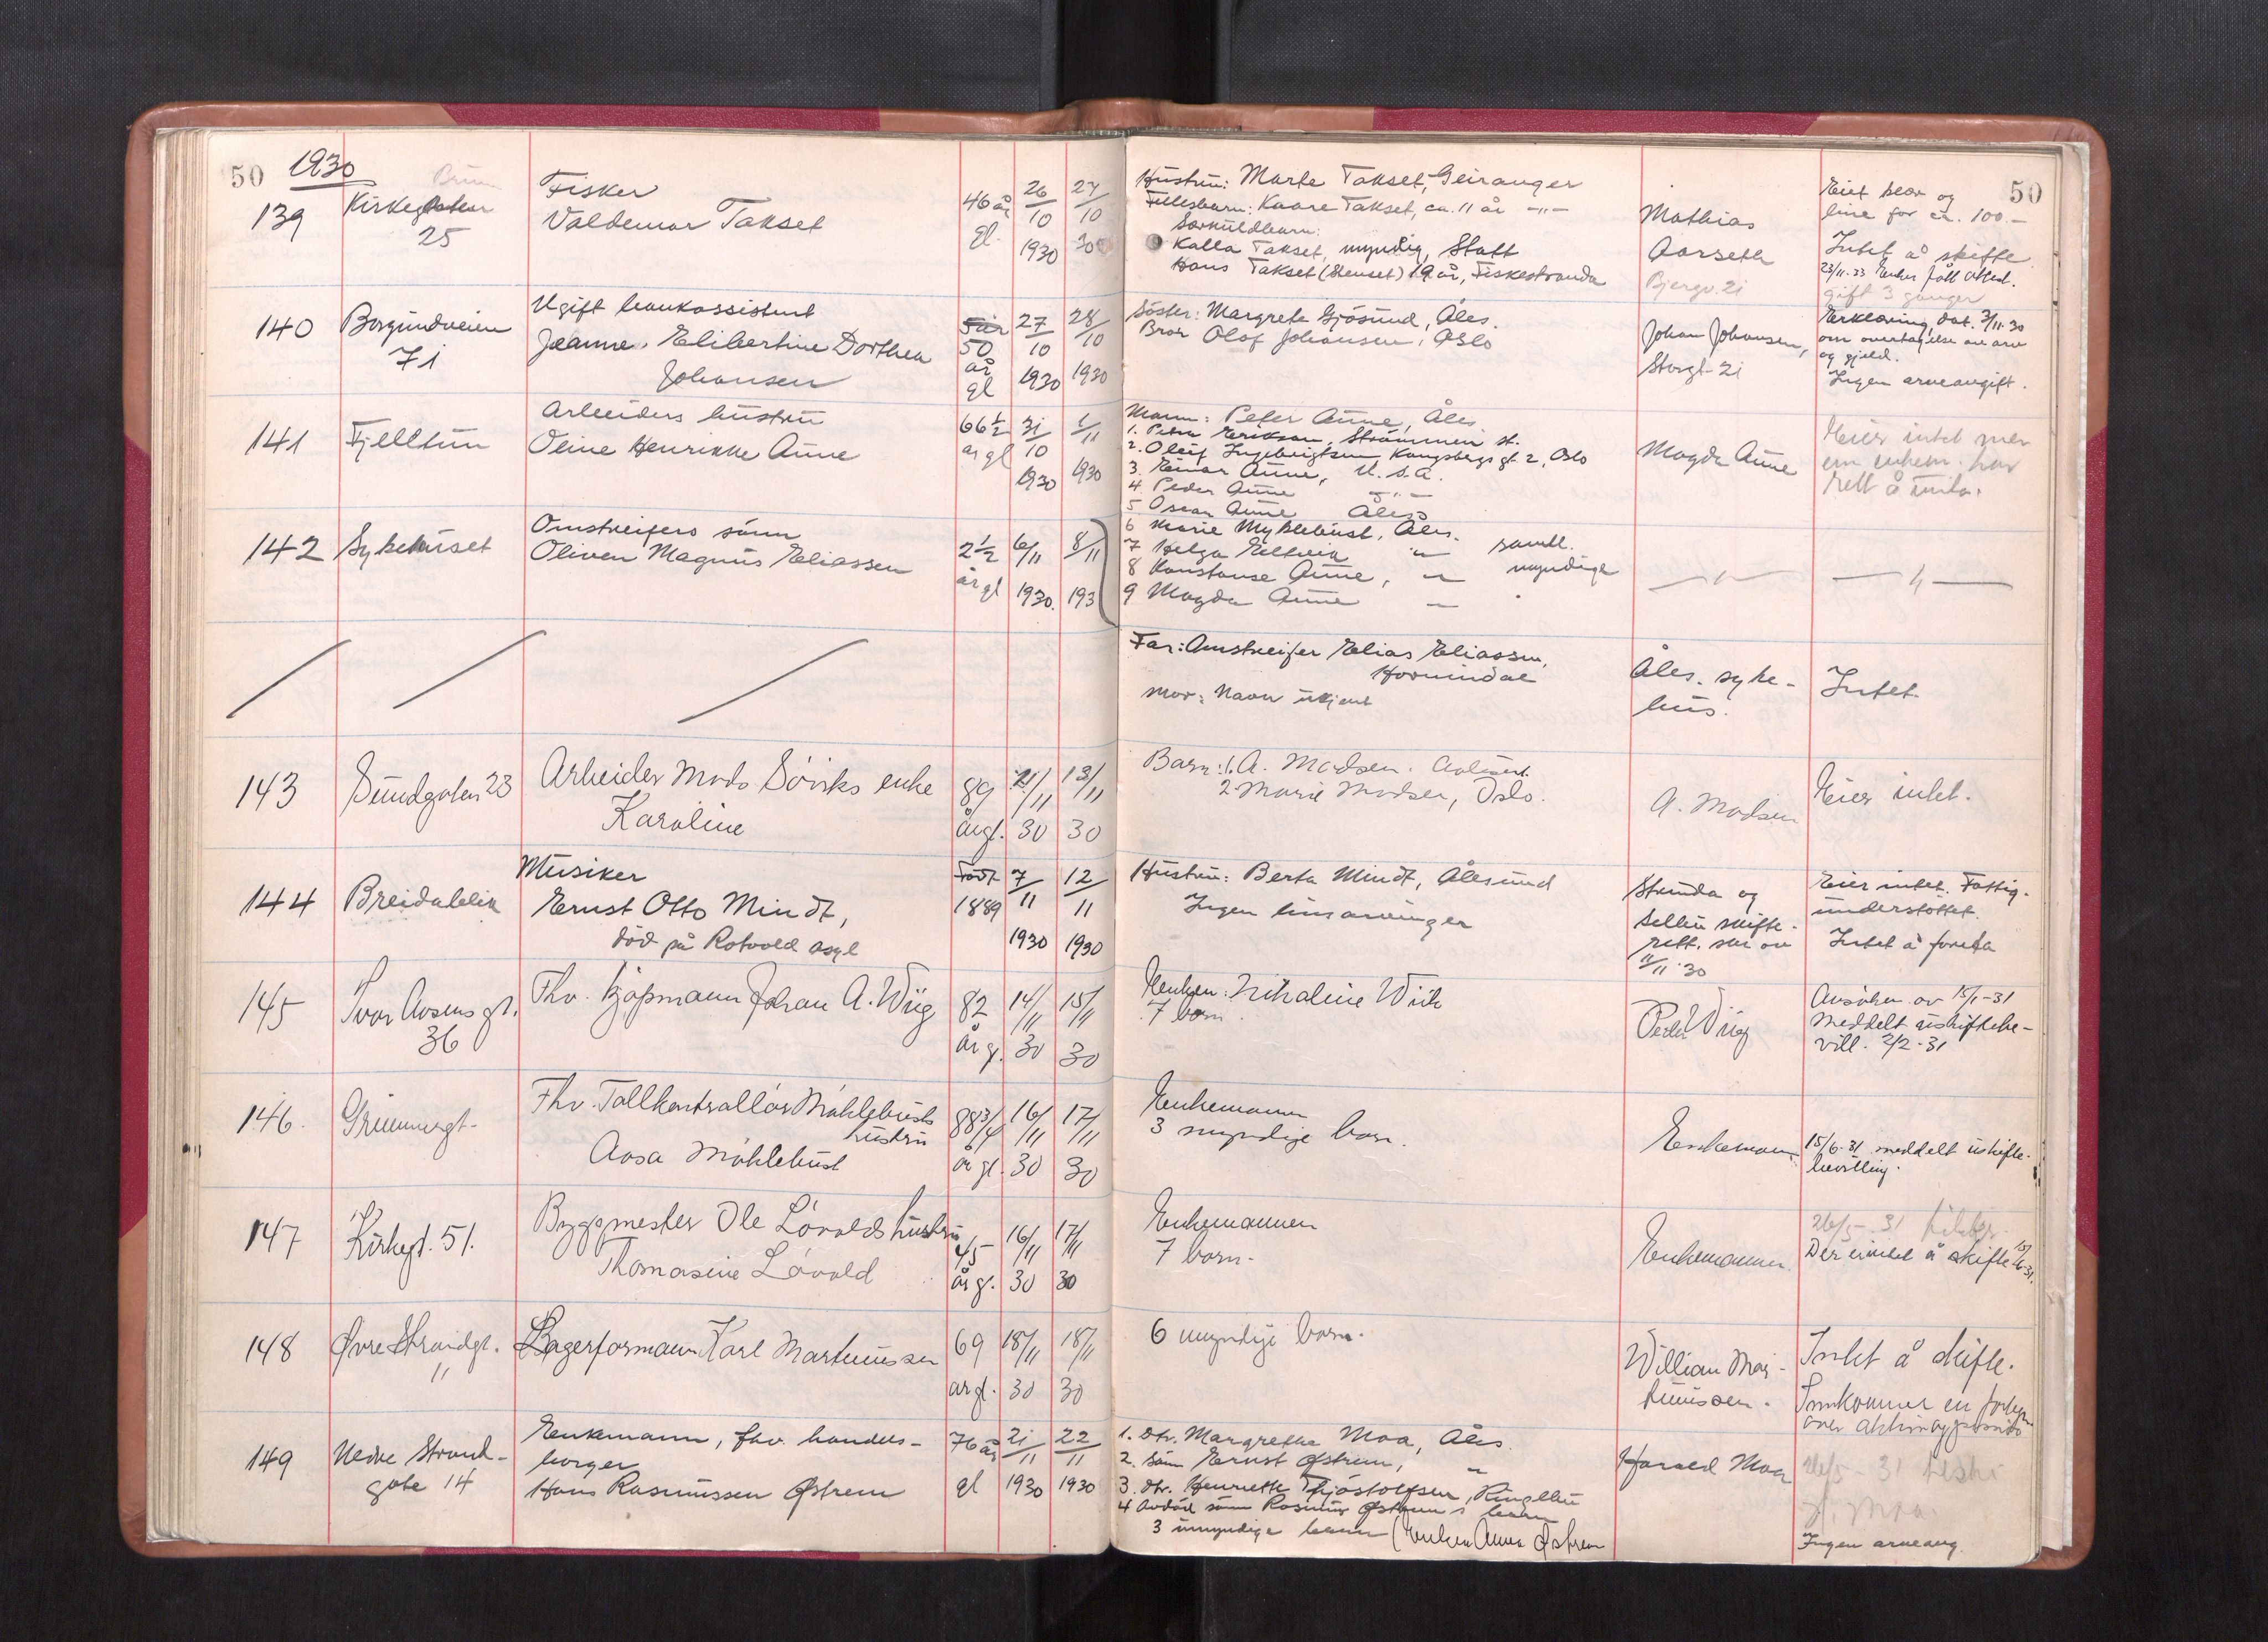 50 1930
139 Kirkegaten 25 Fisker
Valdemar Takset 46 år gl. 26/10 1930 27/10 30
Hustru: Marte Takset, Geiranger
Fellesbarn: Kaare Takset, ca. 11 år -"-
Særkuldbarn:
Kalla Takset, myndig, Statt
Hans Takset (Stenset) 19 år, Fiskestranda
Mathias Aarseth
Bjergv. 21
50
Eiet klær og
line for ca. 100.-
Intet å skifte
23/11-33 Enken fått attest.
gift 3 ganger
140 Borgundveien 71 Ugift bankassistent
Jeanne Elibertine Dorthea
Johansen 50 år gl 27/10 1930 28/10 1930
Söster: Margrete Gjösund, Åles.
Bror Olaf Johansen, Oslo
Johan Johansen,
Storgt 21
Erklæring, dat. 3/11-30
om overtagelse av arv
og gjeld.
Ingen arveavgift.
141 Fjelltun Arbeiders hustru
Oline Henrikke Aune 66 1/2 år gl 31/10 1930 1/11 1930
Mann: Peter Aune, Åles
1. Petra Erikson, Strømmen st.
2. Oleif Ingebrigtsen Kongsbergs gt. 2, Oslo
3. Einar Aune, U.S.A.
4. Peder Aune -"-
5 Oscar Aune Åles
6 Marie Myklebust, Åles.
7 Helga Eltvik " samtl.
8 Konstanse Aune, " myndige
9 Magda Aune "
Magda Aune
Eier intet mer
enn enkem. har
rett å
142 Sykehuset Omstreifers sönn
Oliver Magnus Eliassen 2 1/2 år gl 6/11 1930. 8/11 193
-"- -"-
Far: Omstreifer Elias Eliassen,
Hornindal
Mor: Navn ukjent
Åles. syke-
hus.
Intet.
143 Sundgaten 23 Arbeider Mads Söviks enke
Karoline 89 år gl. 11/11 30 13/11 30
Barn: 1. A. Madsen.
2 Marie Madsen, Oslo.
A. Madsen
Eier intet.
144 Breidablik Musiker
Ernst Otto Mindt,
död på Rotvold asyl
Født 1889 7/11 1930 12/11 1930
Hustru: Berta Mindt, Ålesund
Ingen livsarvinger
Strinda og
Selbu skifte-
rett. skr. av
11/11-30
Eier intet. Fattig-
understöttet.
Intet å foreta
145 Ivar Aasens gt. 36 Fhv. kjøpmann Johan A. Wiig 82 år g. 14/11 30 15/11 30
Enken: Nikoline Wiik
7 barn.
Peder Wiig
Ansöken av 15/1-31
meddelt uskiftebe-
vill. 2/2-31
146. Grimmergt. Fhv. Tollkontrollör Möklebusts
hustru
Aasa Möklebust 88 3/4 år gl. 16/11 30 17/11 30
Enkemann
3 myndige barn.
Enkemann
15/6-31 meddelt uskifte-
bevilling.
147 Kirkegt. 51. Byggmester Ole Lövolds hustru
Thomasine Lövold 45 år g. 16/11 30 17/11 30
Enkemannen
7 barn.
Enkemannen.
26/5-31
Der er intet å skifte 15/6-31.
148 Øvre Strandgt. 11 Lagerformann Karl Martinussen 69 år gl. 18/11 30 18/11 30
6 myndige barn.
William Mar-
tinussen.
Intet å skifte.
Innkommer en
over
149 Nedre Strand-
gate 14 Enkemann, fhv. handels-
borger
Hans Rasmussen Østrem 76 år gl 21/11 1930 22/11 1930
1. Dtr. Margrethe Moa, Åles.
2. Sönn Ernst Østrem, "
3. Dtr. Henriette Thjöstolfsen, Ringebu
4 Avdöd sönn Rasmus Østrem's barn
3 umyndige barn (Enken Anna Østrem
Harald Moa
26/5-31
H. Moa.
Ingen arveavg.